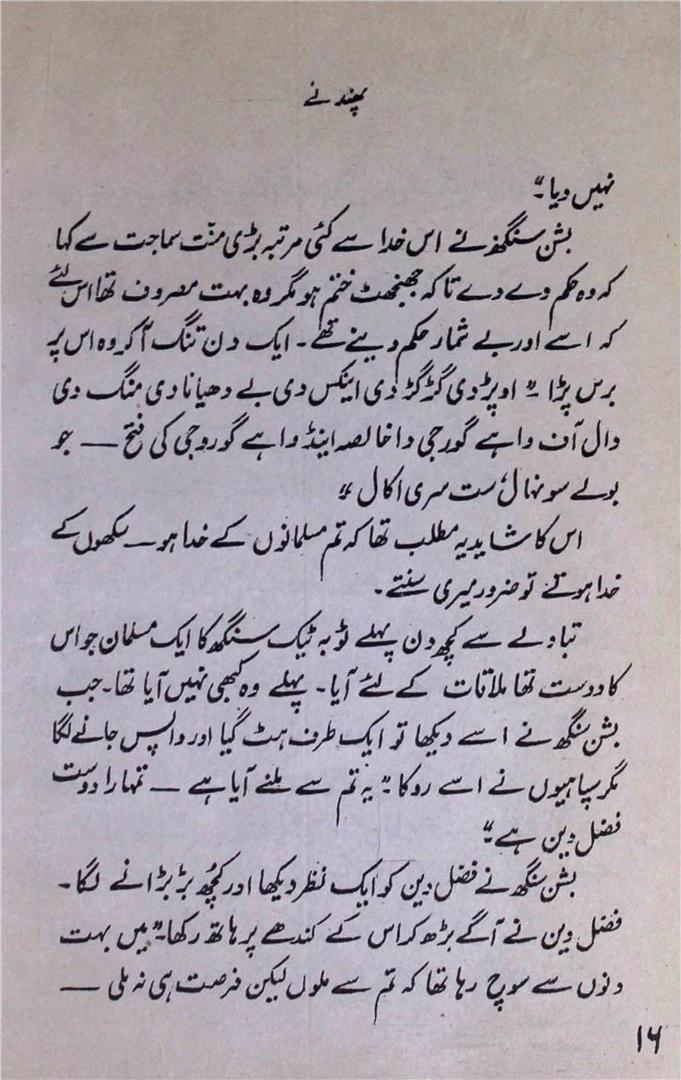 پھندنے
نہیں دیا۔"
بشن سنگھ نے اس خدا سے کئی مرتبہ بڑی منّت سماجت سے کہا
کہ وہ حکم دے دے تاکہ جھنجھٹ ختم ہو مگر وہ بہت مصروف تھا اس لئے
کہ اسے اور بے شمار حکم دینے تھے۔ ایک دن تنگ آکر وہ اس پر
برس پڑا "اوپڑ دی گڑ گڑ دی اینکس دی بے دھیانا دی منگ دی
دال آف واہے گورجی دا خالصہ اینڈ واہے گوروجی کی فتح — جو
بولے سو نہال ست سری اکال"
اس کا شاید یہ مطلب تھا کہ تم مسلمانوں کے خدا ہو — سکھوں کے
خدا ہوتے تو ضرور میری سنتے۔
تبادلے سے کچھ دن پہلے ٹوبہ ٹیک سنگھ کا ایک مسلمان جو اس
کا دوست تھا ملاقات کے لئے آیا۔ پہلے وہ کبھی نہیں آیا تھا۔ جب
بشن سنگھ نے اسے دیکھا تو ایک طرف ہٹ گیا اور واپس جانے لگا
مگر سپاہیوں نے اسے روکا۔ "یہ تم سے ملنے آیا ہے — تمہارا دوست
فضل دین ہے"
بشن سنگھ نے فضل دین کو ایک نظر دیکھا اور کچھ بڑبڑانے لگا۔
فضل دین نے آگے بڑھ کر اس کے کندھے پر ہاتھ رکھا۔ "میں بہت
دنوں سے سوچ رہا تھا کہ تم سے ملوں لیکن فرصت ہی نہ ملی —
۱۶